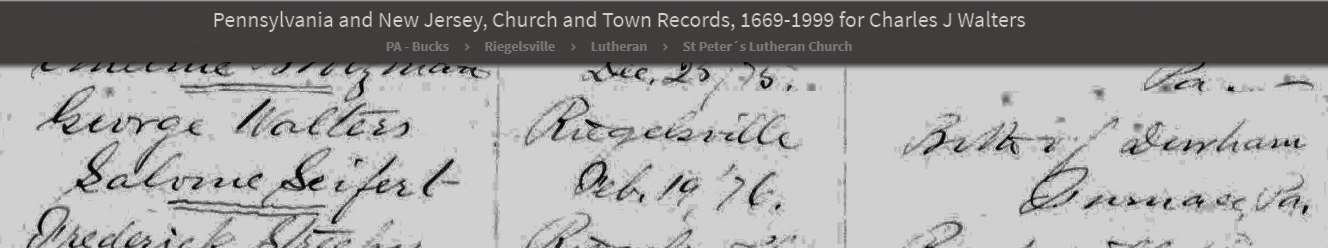 Pennsylvania and New Jersey, Church and Town Records, 1669-1999 for Charles J Walters
PA - Bucks › Riegelsville › Lutheran › St Peter´s Lutheran Church
Dec. 25, '75. Pa. —
George Walters Riegelsville Both of Durham
Salome Seifert Feb. 19 '76. Furnace, Pa.
Frederick